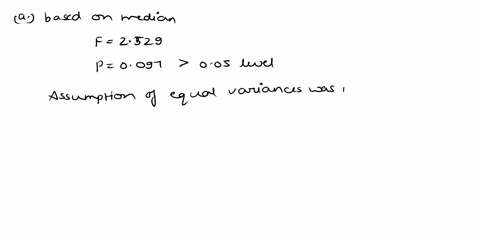 (a.) based on median
F = 2.529
P = 0.097 > 0.05 level
Assumption of equal variances was